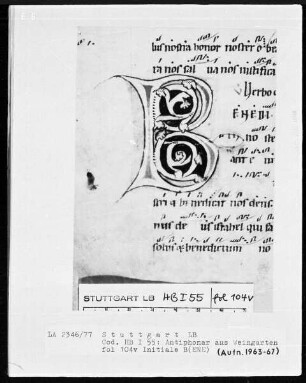 bus nostra honor noster o be
ra nos sal ua nos iustifica
Verbo
ENEDI
no ste
ant e
stri & benedicat nos deus
nus de us isrl qui fa
solus & benedictum no
STUTTGART LB HB I 55 fol 104v
LA 2346/77 Stuttgart LB
Cod. HB I 55: Antiphonar aus Weingarten
fol 104v Initiale B(ENE) (Aufn. 1963-67)